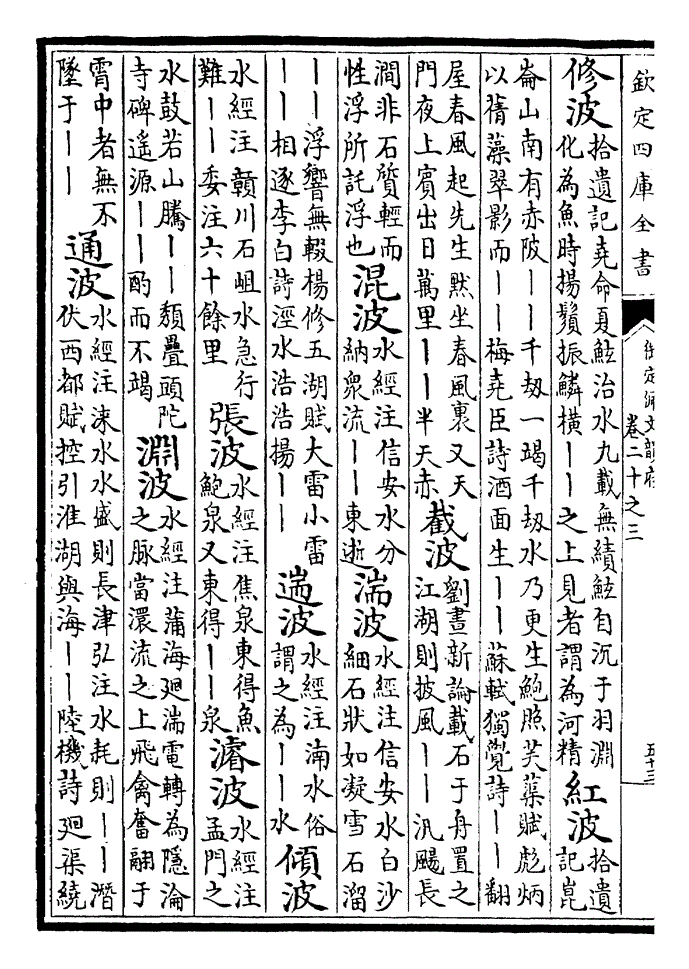 欽定四庫全書
御定佩文韻府
卷二十之三
五十三
修波
拾遺記堯命夏鯀治水九載無績鯀自沉于羽淵
化為魚時揚鬚振鱗橫丨丨之上見者謂為河精
紅波
拾遺
記崑
崙山南有赤陂丨丨千刼一竭千刼水乃更生鮑照芙蕖賦彪炳
以蒨藻翠影而丨丨梅堯臣詩酒面生丨丨蘇軾獨覺詩丨丨翻
屋春風起先生黙坐春風裏又天
門夜上賓出日萬里丨丨半天赤
截波
劉晝新論載石于舟置之
江湖則披風丨丨汎颺長
澗非石質輕而
性浮所託浮也
混波
水經注信安水分
納衆流丨丨東逝
湍波
水經注信安水白沙
細石狀如凝雪石溜
丨丨浮響無輟楊修五湖賦大雷小雷
丨丨相逐李白詩涇水浩浩揚丨丨
遄波
水經注湳水俗
謂之為丨丨水
傾波
水經注贛川石岨水急行
難丨丨委注六十餘里
張波
水經注焦泉東得魚
鮑泉又東得丨丨泉
濬波
水經注
孟門之
水鼓若山騰丨丨頽疊頭陀
寺碑遥源丨丨酌而不竭
淵波
水經注蒲海廻湍電轉為隱淪
之脈當澴流之上飛禽奮翮于
霄中者無不
墜于丨丨
通波
水經注涑水水盛則長津弘注水耗則丨丨潛
伏西都賦控引淮湖與海丨丨陸機詩廻渠繞